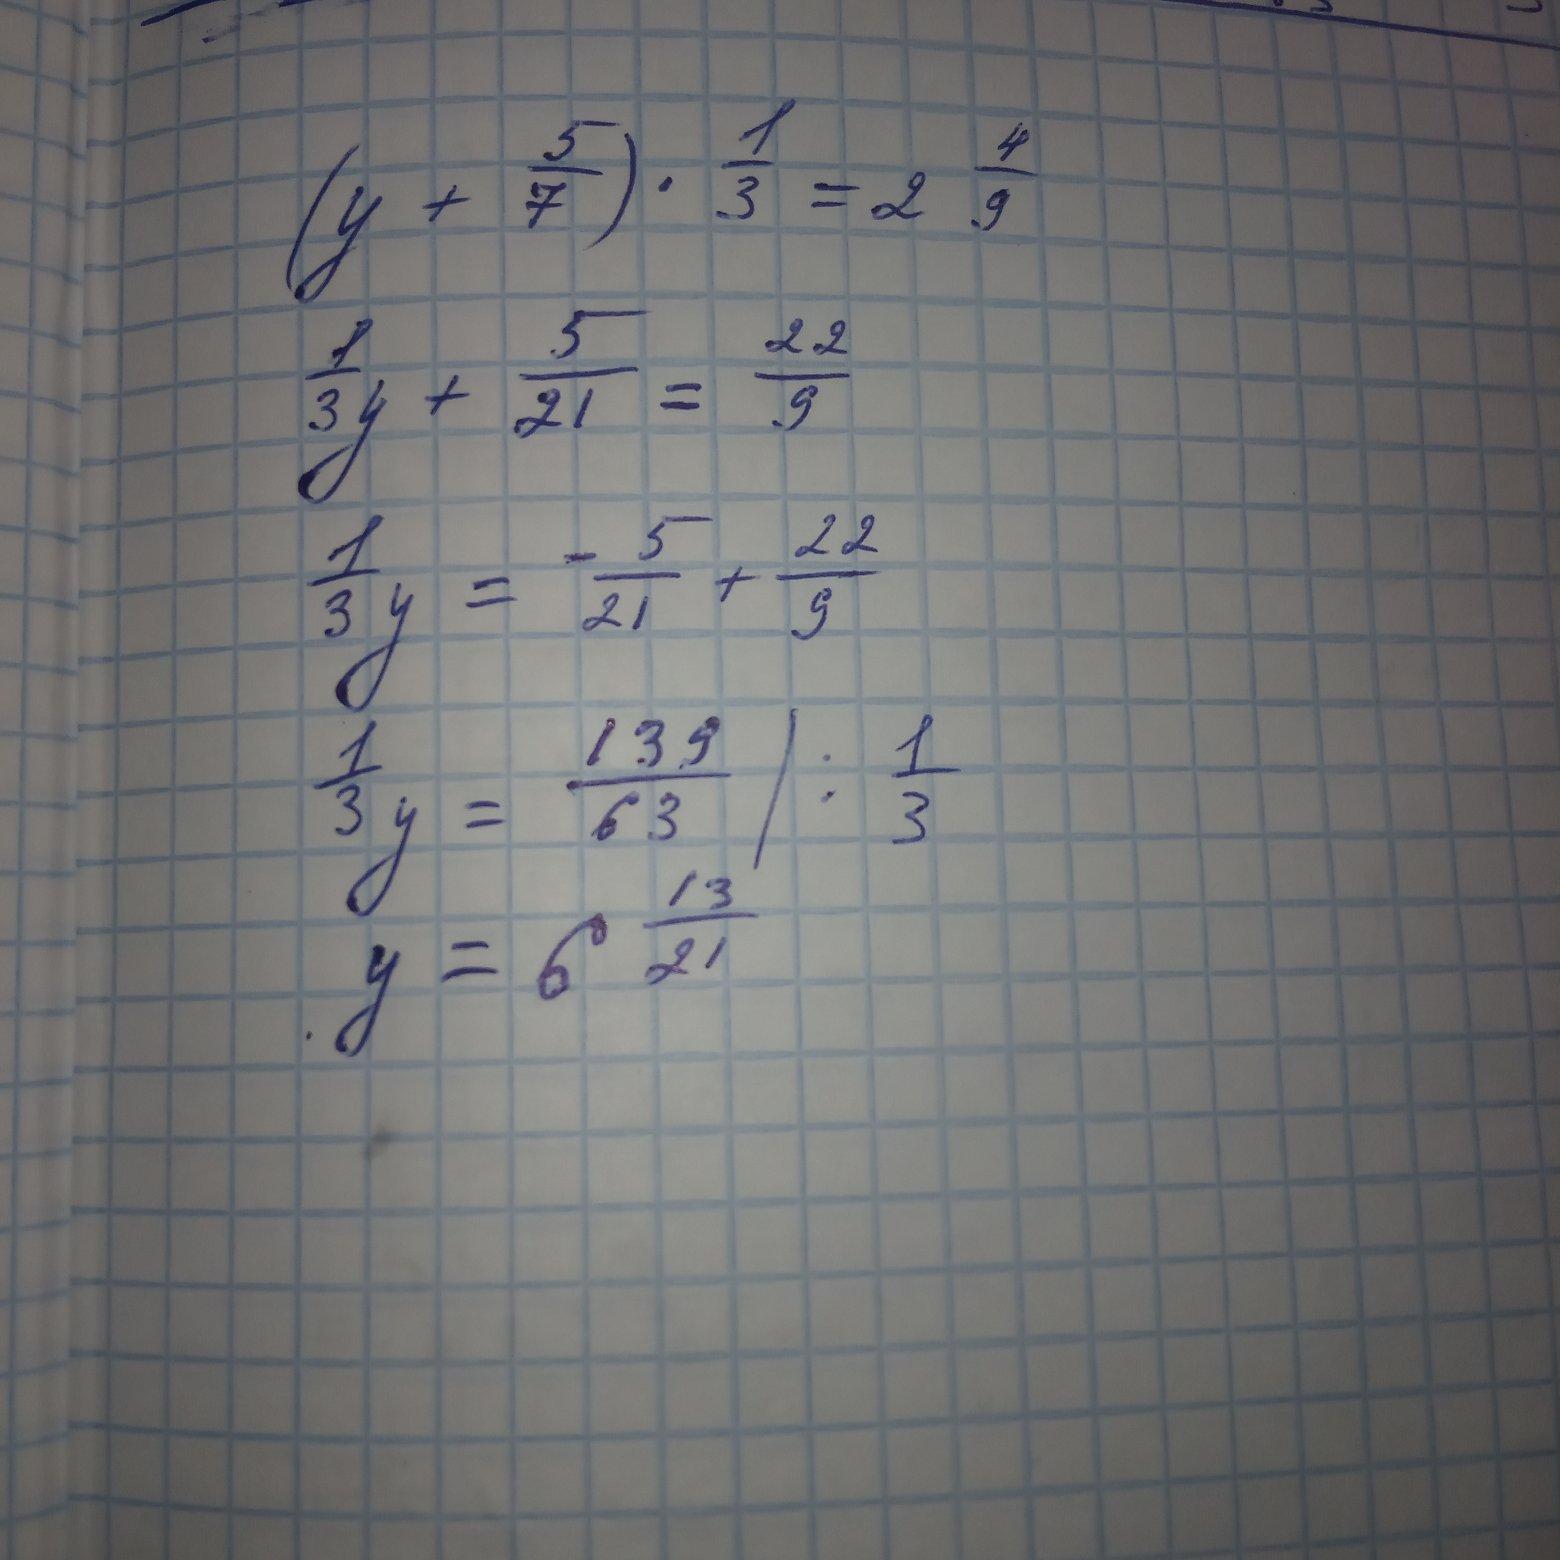 (y + 5/7) · 1/3 = 2 4/9
1/3 y + 5/21 = 22/9
1/3 y = - 5/21 + 22/9
1/3 y = 139/63 / : 1/3
y = 6 13/21